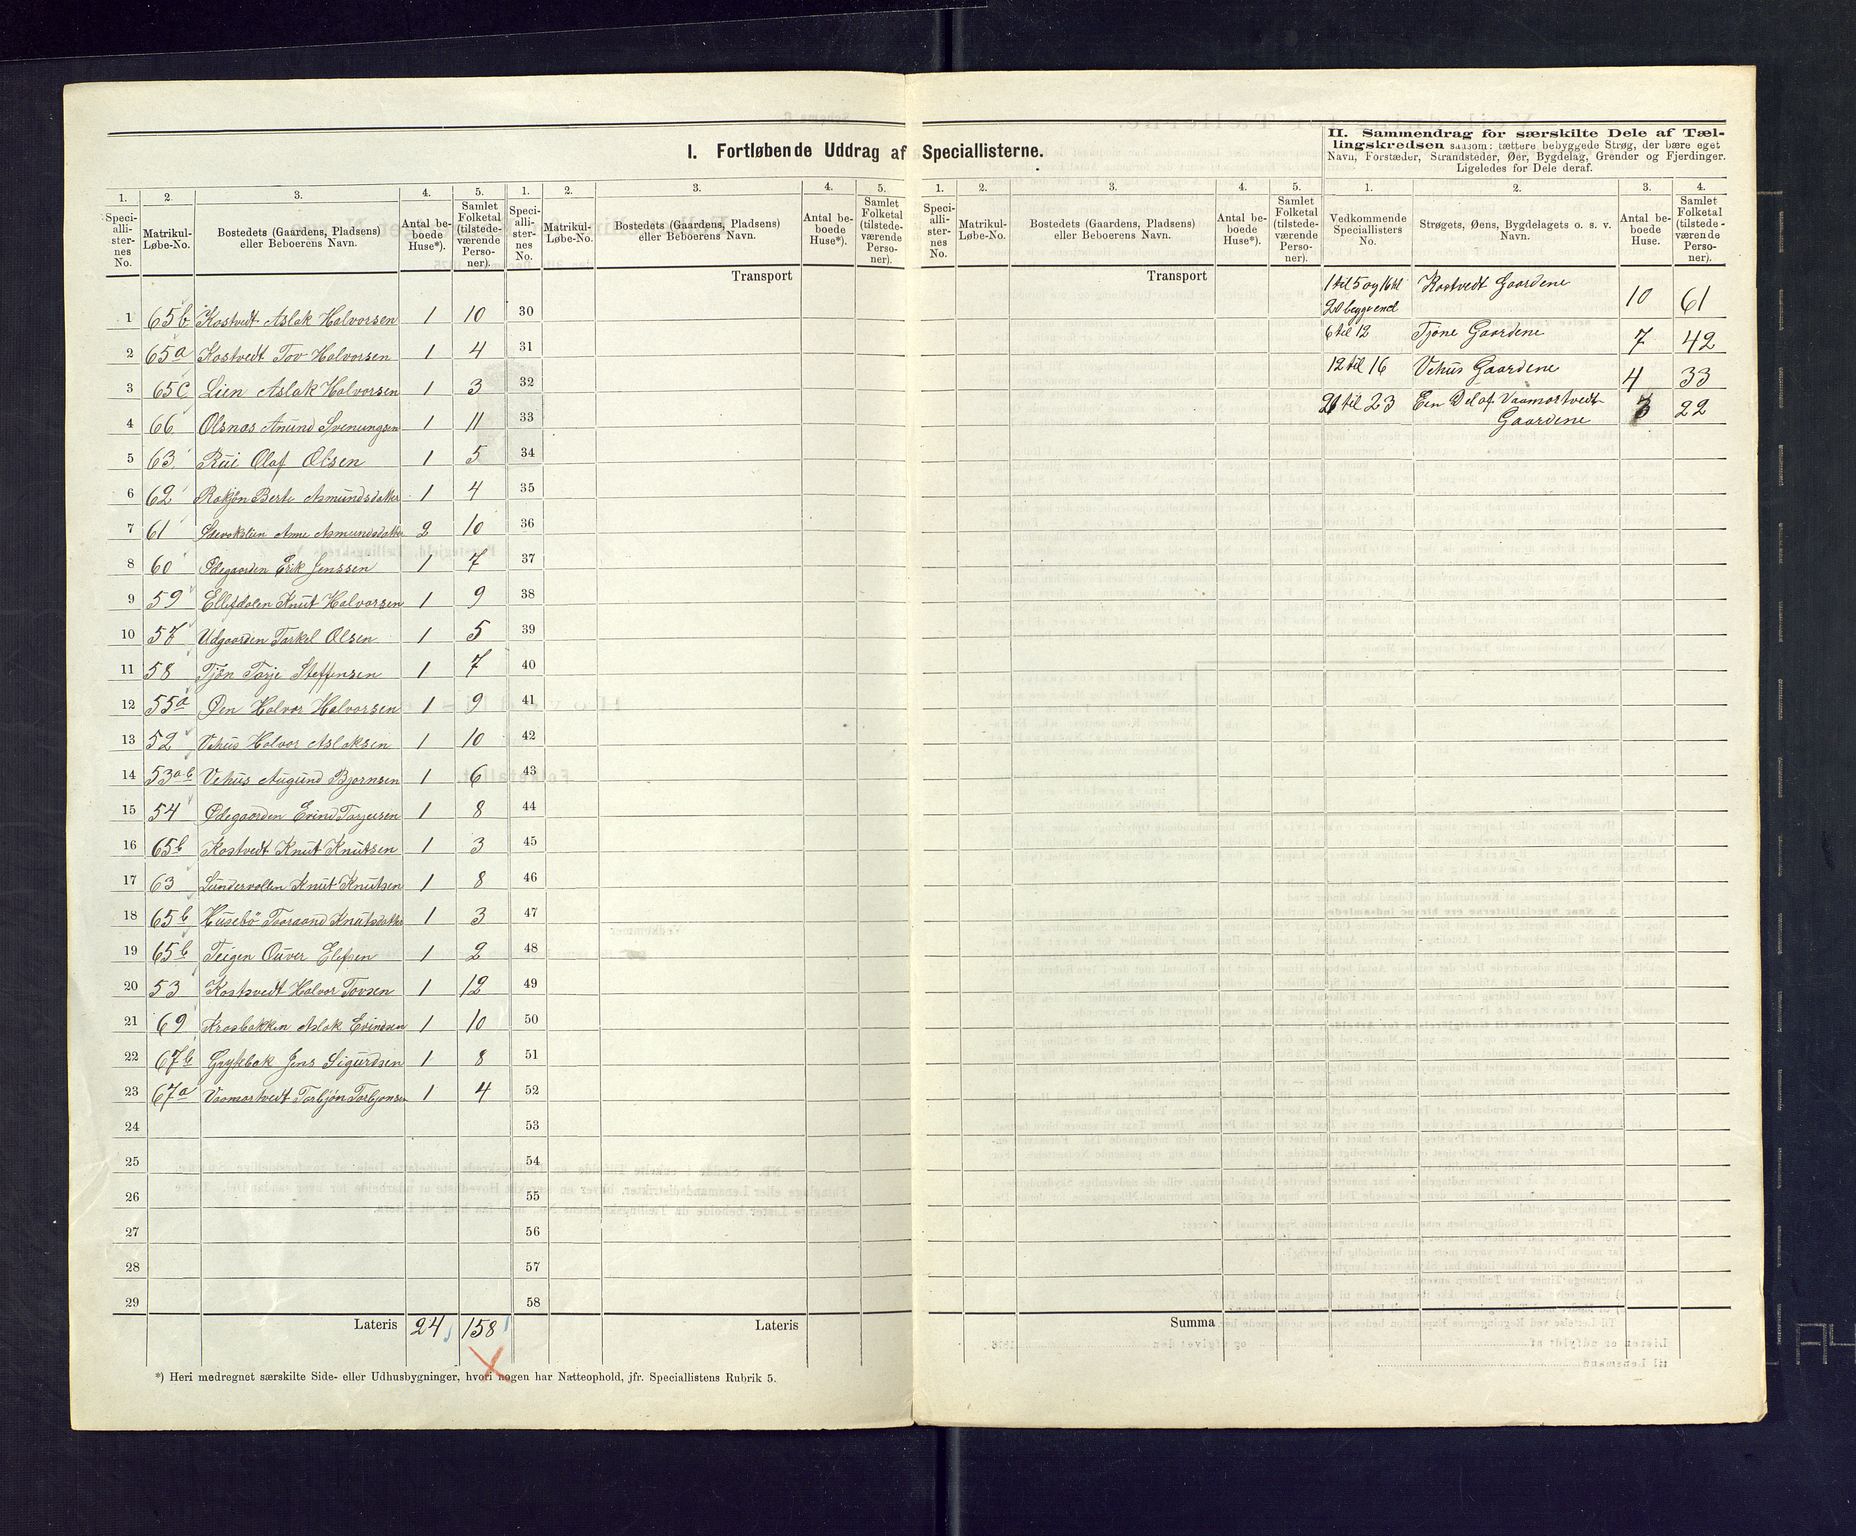 I. Fortløbende Uddrag af Speciallisterne.
II. Sammendrag for særskilte Dele af Tæl-
lingskredsen saasom: tættere bebyggede Strøg, der bære eget
Navn, Forstæder, Strandsteder, Øer, Bygdelag, Grender og Fjerdinger.
Ligeledes for Dele deraf.
1. 2. 3. 4. 5. 1. 2. 3. 4. 5. 1. 2. 3. 4. 5. 1. 2. 3. 4.
Speciallisternes No. Matrikul-Løbe-No. Bostedets (Gaardens, Pladsens) eller Beboerens Navn. Antal beboede Huse*). Samlet Folketal (tilstedeværende Personer).
Speciallisternes No. Matrikul-Løbe-No. Bostedets (Gaardens, Pladsens) eller Beboerens Navn. Antal beboede Huse*). Samlet Folketal (tilstedeværende Personer).
Speciallisternes No. Matrikul-Løbe-No. Bostedets (Gaardens, Pladsens) eller Beboerens Navn. Antal beboede Huse*). Samlet Folketal (tilstedeværende Personer).
Vedkommende Speciallisters No. Strøgets, Øens, Bygdelagets o. s. v. Navn. Antal beboede Huse. Samlet Folketal (tilstedeværende Personer).
Transport
Transport
1 65b Kostvedt Aslak Halvorsen 1 10 30
2 65a Kostvedt Tov Halvorsen 1 4 31
3 65c Lien Aslak Halvorsen 1 3 32
4 66 Olsnas Anund Svenungsen 1 11 33
5 63 Rui Olaf Olsen 1 5 34
6 62 Rokjøn Berte Asmundsdatter 1 4 35
7 61 Anne Asmundsdatter 2 10 36
8 60 Ødegaarden Erik Jenssen 1 7 37
9 59 Ellefdalen Knut Halvorsen 1 9 38
10 57 Udgaarden Tarkel Olsen 1 5 39
11 58 Tjøn Torje Steffensen 1 7 40
12 55a Øen Halvor Halvorsen 1 9 41
13 52 Vehus Halvor Aslaksen 1 10 42
14 53a-b Vehus Augund Bjørnsen 1 6 43
15 54 Ødegaarden Evind Torjeisen 1 8 44
16 65b Kostvedt Knut Knutsen 1 3 45
17 63 Lundevollen Knut Knutsen 1 8 46
18 65b Husebö Tooraand Knutsdatter 1 3 47
19 65b Teigen Ouver Elefsen 1 2 48
20 53 Kostvedt Halvor Tovsen 1 12 49
21 69 Krosbakken Aslak Evindsen 1 10 50
22 67b Grytebæk Jens Sigurdsen 1 8 51
23 67a Vaamartvedt Torbjøn Torbjønsen 1 4 52
24 53
25 54
26 55
27 56
28 57
29 58
Lateris 24 158
Lateris
Summa
1 til 5 og 16 til 20 beggvend Kostvedt Gaardene 10 61
6 til 12 Tjøne Gaardene 7 42
12 til 16 Vehus Gaardene 4 33
21 til 23 Een Del af Vaamartvedt Gaardene 3 22
*) Heri medregnet særskilte Side- eller Udhusbygninger, hvori nogen har Natteophold, jfr. Speciallistens Rubrik 5.